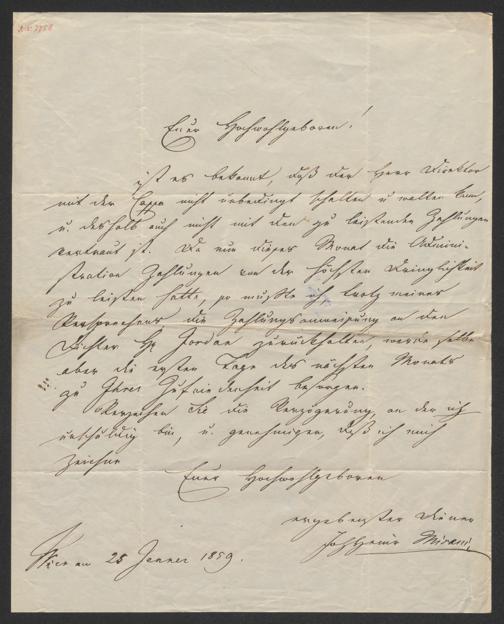 Euer Hochwohlgeboren!
ist es bekannt, daß der Herr Direktor
mit der Cassa nicht unbedingt schalten u walten kann,
u. deshalb auch nicht mit den zu leistenden Zahlungen
vertraut ist. Da nun dieses Monat die Admini-
stration Zahlungen von der höchsten Dringlichkeit
zu leisten hatte, so mußte ich trotz meines
Versprechens die Zahlungsanweisung an den
Dichter H Jordan zurückhalten, werde selbe
aber die ersten Tage des nächsten Monats
zu Ihrer Zufriedenheit besorgen.
Verzeihen Sie die Verzögerung, an der ich
unschuldig bin, u. genehmigen, daß ich mich
zeichne
Euer Hochwohlgeboren
ergebenster Diener
Joh Heinr Mirani
Wien am 25 Jänner 1859.